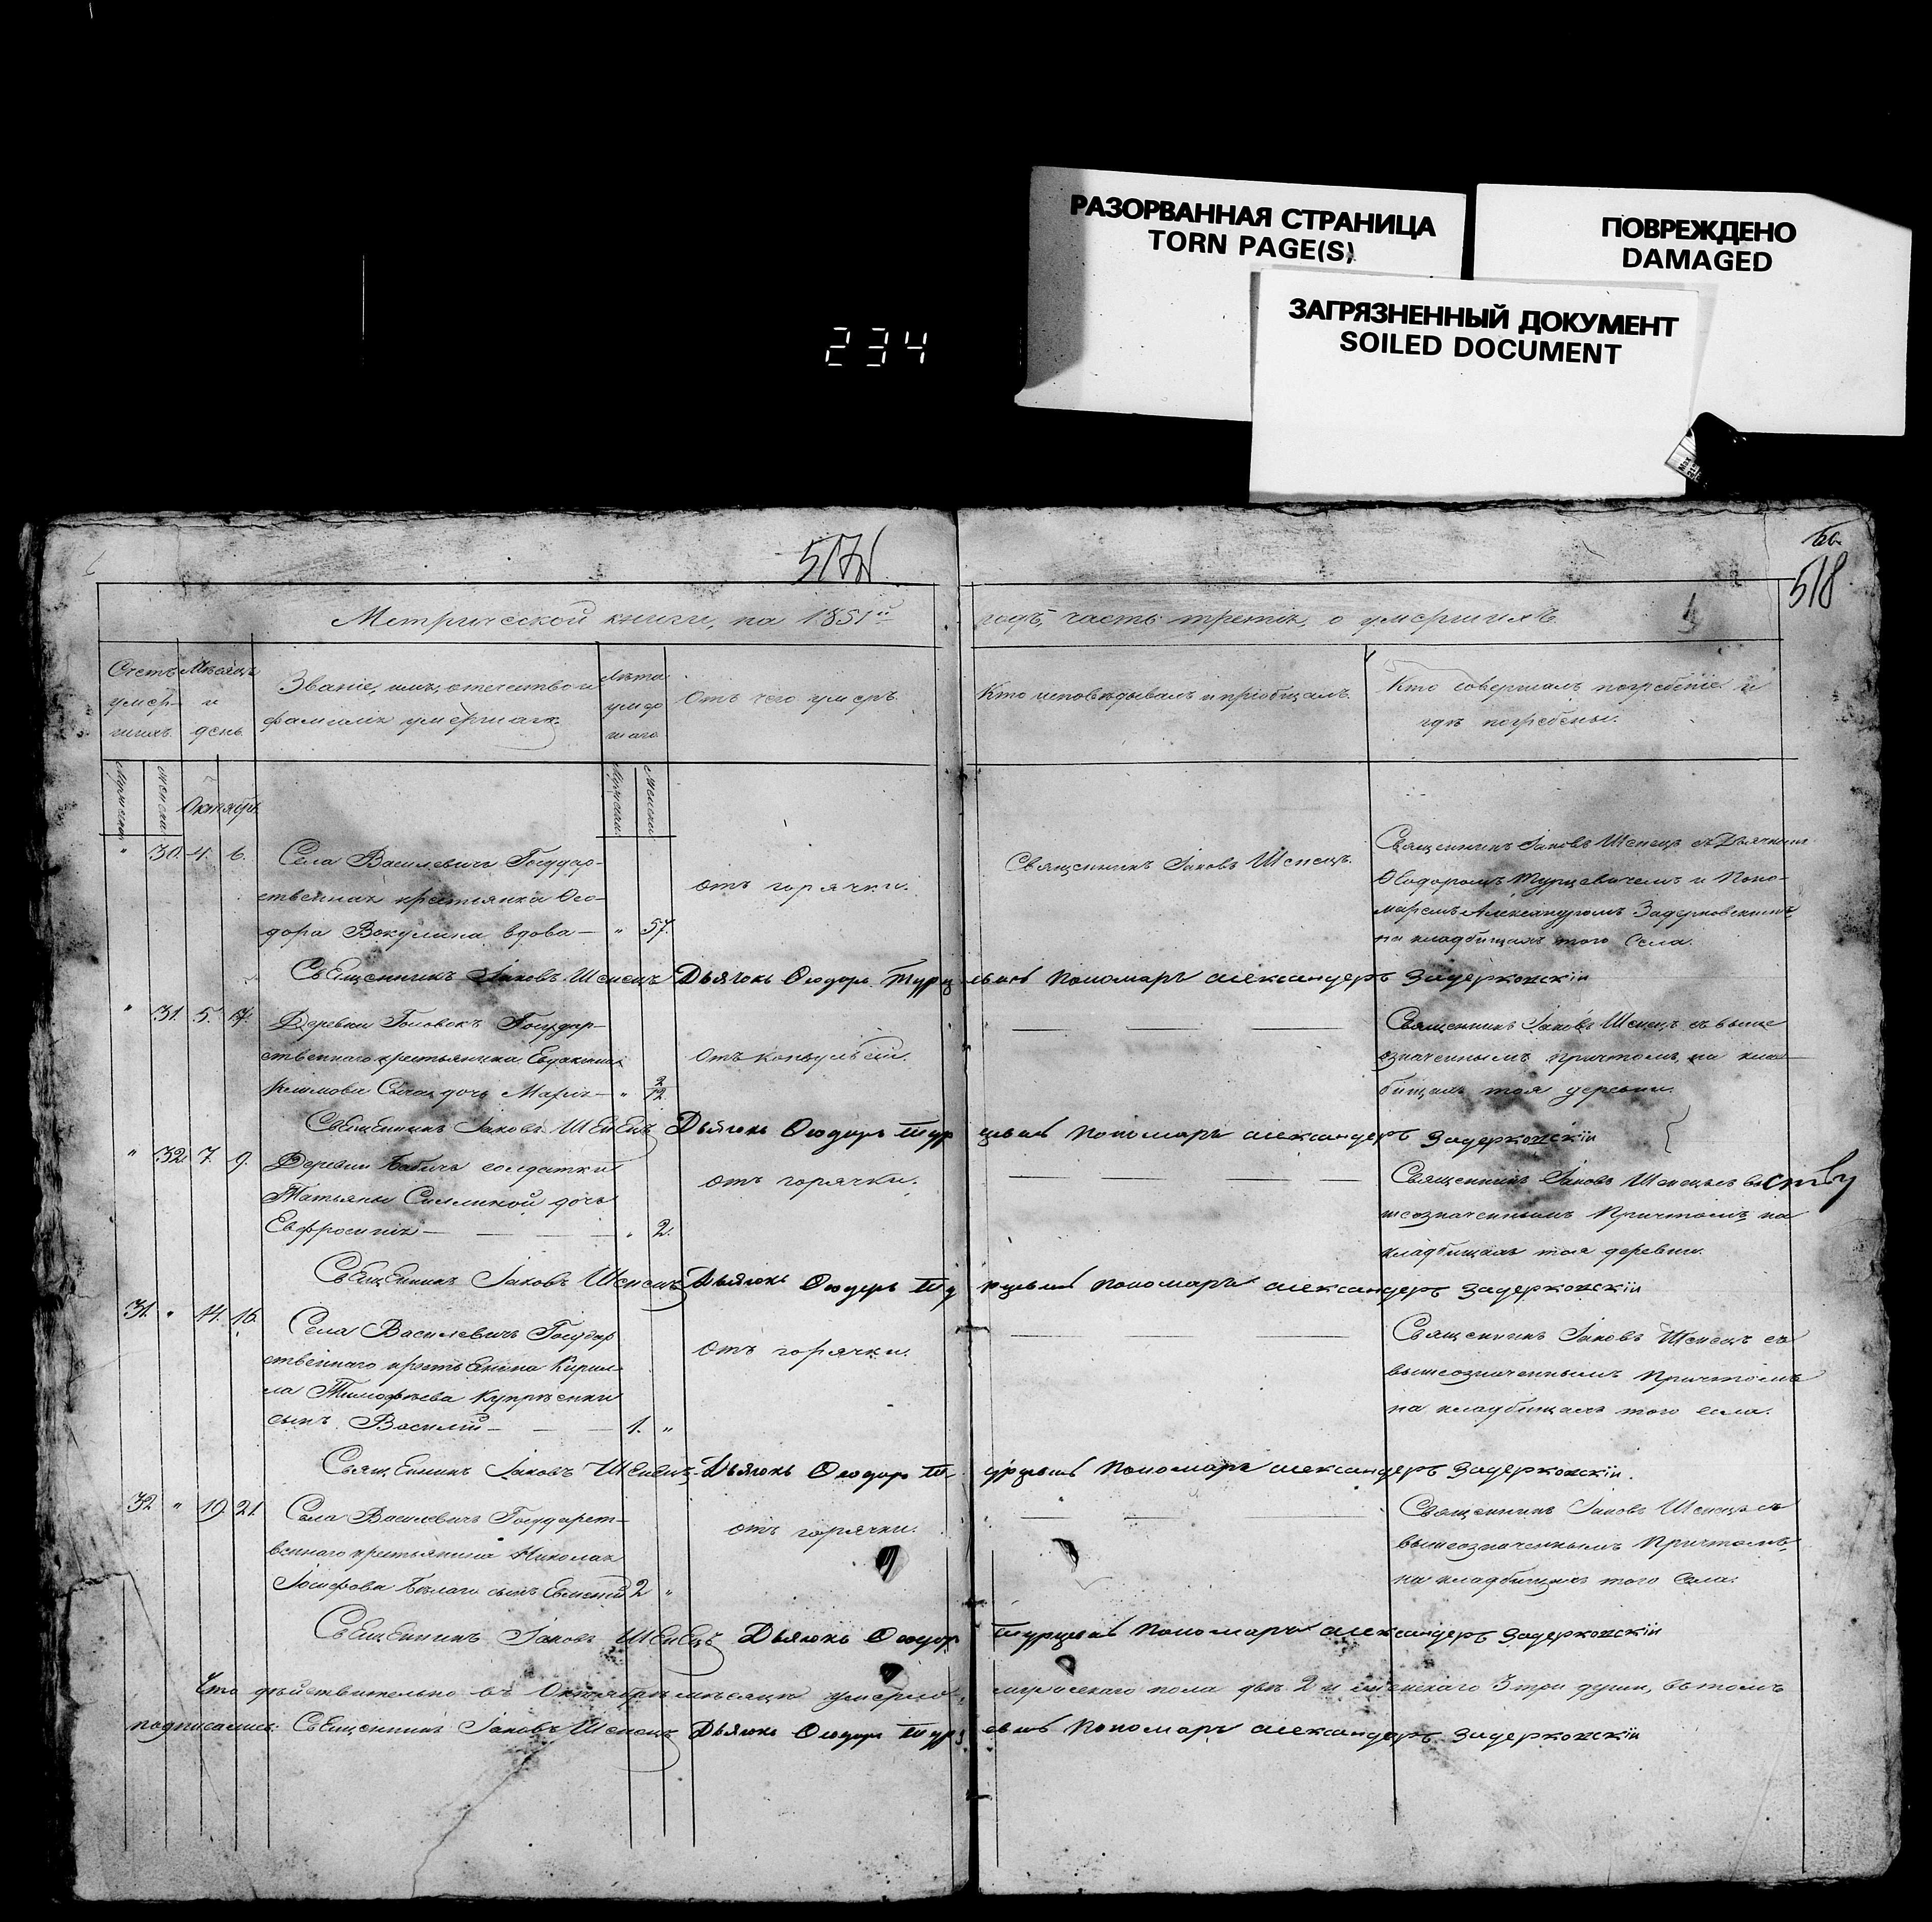 РАЗОРВАННАЯ СТРАНИЦА
TORN PAGE(S)
ПОВРЕЖДЕНО
DAMAGED
ЗАГРЯЗНЕННЫЙ ДОКУМЕНТ
SOILED DOCUMENT
234
518
Метрической книги, на 1851й годъ, часть третія, о умершихъ
Счетъ умер-
шихъ
Мѣсяцъ
и
день
Званіе, имя, отечество и
фамилія умершаго
Лѣта
умер
шаго
Отъ чего умеръ
Кто исповѣдывалъ и пріобщалъ
Кто совершалъ погребеніе и
гдѣ погребены.
Мужеска
Женска
Октябрь
Мужеска
Женска
" 30. 4. 6.
Села Василевичъ Государ-
ственная крестьянка Ѳео-
дора Вакулина вдова — " 57.
отъ горячки.
Священникъ Іаковъ Шепецъ.
Священникъ Іаковъ Шепецъ съ Дьячкомъ
Ѳеодоромъ Турцевичемъ и Поно-
маремъ Александромъ Задерковскимъ
на кладбищахъ того Села.
Священникъ Іаковъ Шепецъ Дьячокъ Ѳеодоръ Турцевичъ Пономаръ александеръ Задерковскій
" 31. 5. 17.
Деревни Головокъ Государ-
ственнаго крестьянина
дочь Марія — " 2/12
отъ конвульсіи.
Священникъ Іаковъ Шепецъ съ выше
означеннымъ причтомъ, на клад-
бищахъ тоя деревни.
Священникъ Іаковъ Шепецъ Дьячокъ Ѳеодоръ Турцевичъ Пономаръ александеръ Задерковскій
" 32. 7. 9.
Деревни Бабичъ солдатки
Татьяны дочь
Евфросинія — " 2.
отъ горячки.
Священникъ Іаковъ Шепецъ съ вы
шеозначеннымъ Причтомъ на
кладбищахъ тоя деревни.
Священникъ Іаковъ Шепецъ Дьячокъ Ѳеодоръ Турцевичъ Пономаръ александеръ Задерковскій
31. " 14. 16.
Села Василевичъ Государ
ственнаго крестьянина Кирил-
ла Тимофѣева Купрѣенки
сынъ Василій — 1. "
отъ горячки.
Священникъ Іаковъ Шепецъ съ
вышеозначеннымъ Причтомъ
на кладбищахъ того села.
Священникъ Іаковъ Шепецъ Дьячокъ Ѳеодоръ Турцевичъ Пономаръ александеръ Задерковскій.
32 " 19. 21.
Села Василевичъ Государст-
веннаго крестьянина Николая
Іосифова Бѣлаго сынъ 2 "
отъ горячки.
Священникъ Іаковъ Шепецъ съ
вышеозначеннымъ Причтомъ
на кладбищахъ того Села.
Священникъ Іаковъ Шепецъ Дьячокъ Ѳеодоръ Турцевичъ Пономаръ александеръ Задерковскій
Что дѣйствительно въ Октябрѣ мѣсяцѣ умерло мужескаго пола двѣ 2 и женскаго 3 три души, въ томъ
подписались: Священникъ Іаковъ Шепецъ Дьячокъ Ѳеодоръ Турцевичъ Пономаръ александеръ Задерковскій